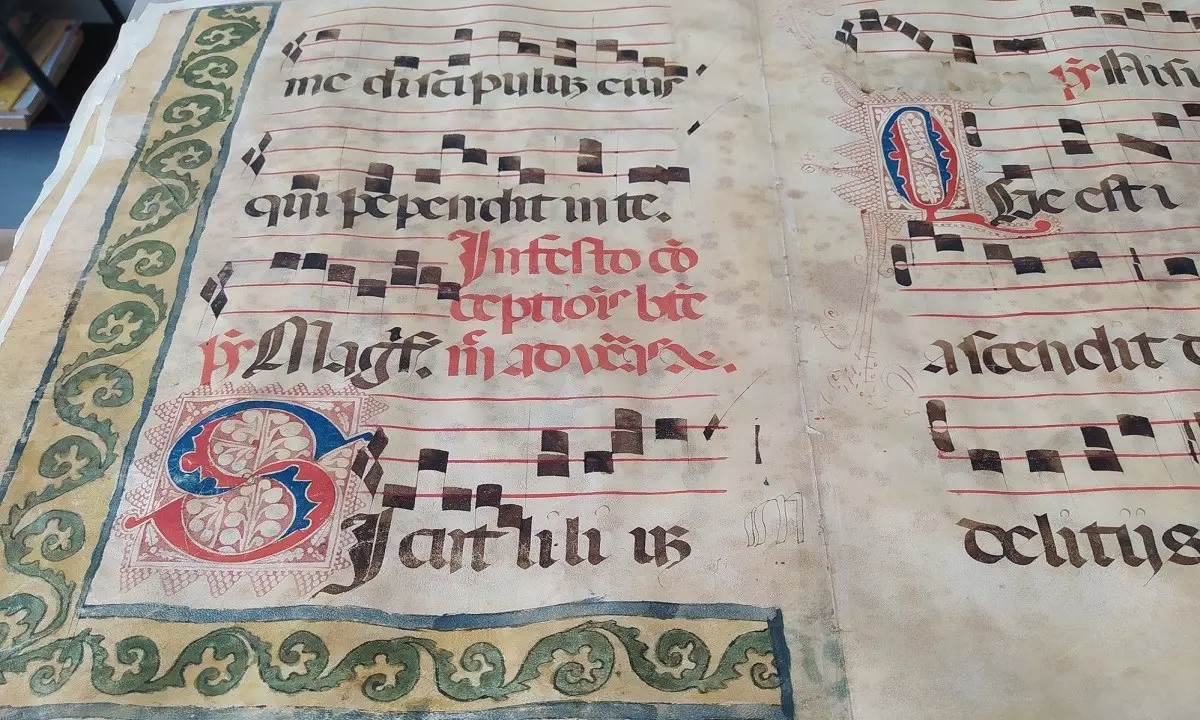 me discipulus eius
qui pependit in te.
In festo cō
ceptiōis btē
ps Magft. m̄ ad vēās.
SIcut lili us
ps Misi
QUe est i
ascendit d
delitijs